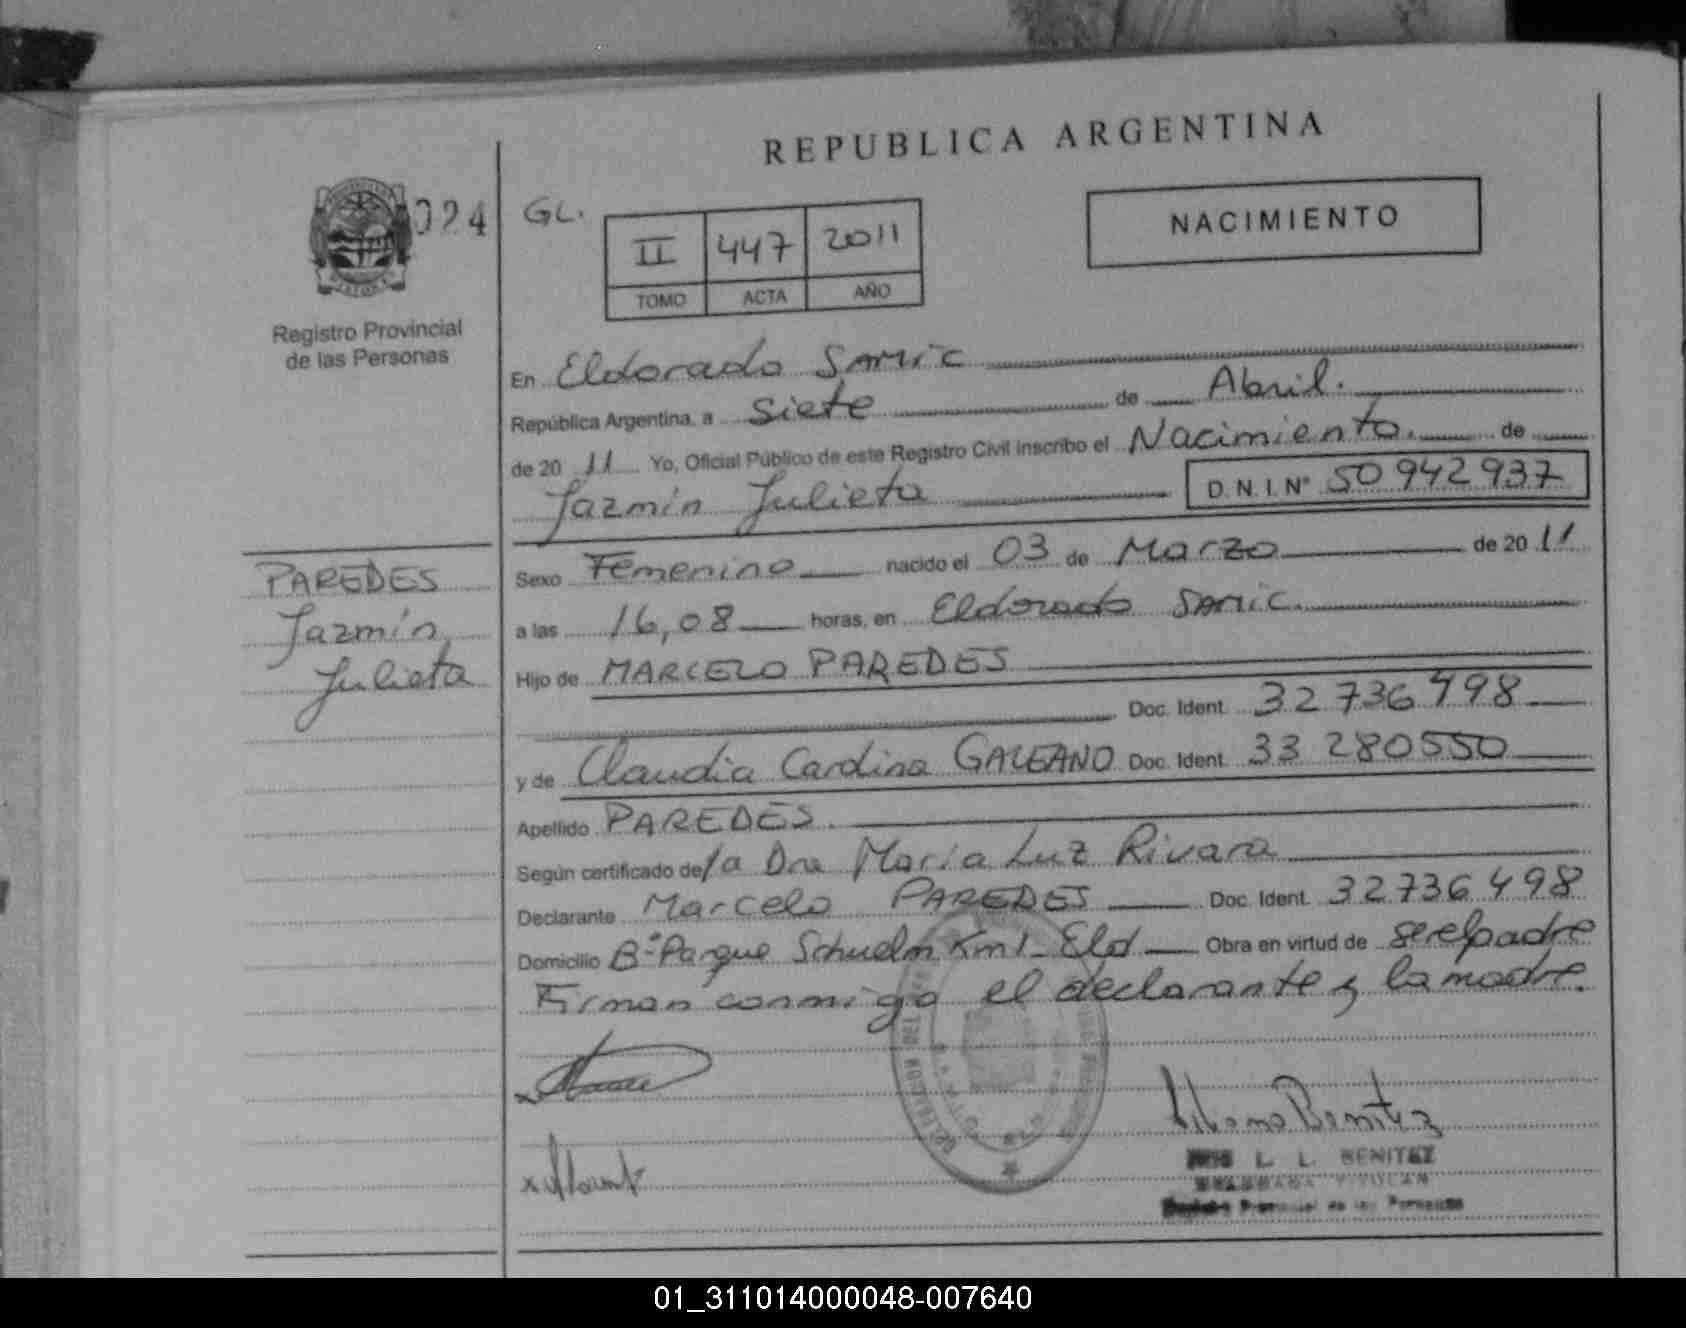 REPUBLICA ARGENTINA
024
GL.
II 447 2011
TOMO ACTA AÑO
NACIMIENTO
Registro Provincial
de las Personas
En Eldorado SAMIC
República Argentina, a siete de Abril.
de 20 11 Yo, Oficial Público de este Registro Civil inscribo el Nacimiento. de
Jazmín Julieta D.N.I. Nº 50 942 937
PAREDES
Jazmín
Julieta
Sexo Femenino nacido el 03 de Marzo de 20 11
a las 16,08 horas, en Eldorado SAMIC.
Hijo de MARCELO PAREDES
Doc. Ident. 32 736 498
y de Claudia Carolina GALEANO Doc. Ident. 33 280550
Apellido PAREDES.
Según certificado de la Dra María Luz Rivara
Declarante Marcelo PAREDES Doc. Ident. 32736498
Domicilio Bº Parque Schuelm Km1 - Eld Obra en virtud de ser el padre
Firman conmigo el declarante y la madre.
Benitez
L. L. BENITEZ
01_311014000048-007640